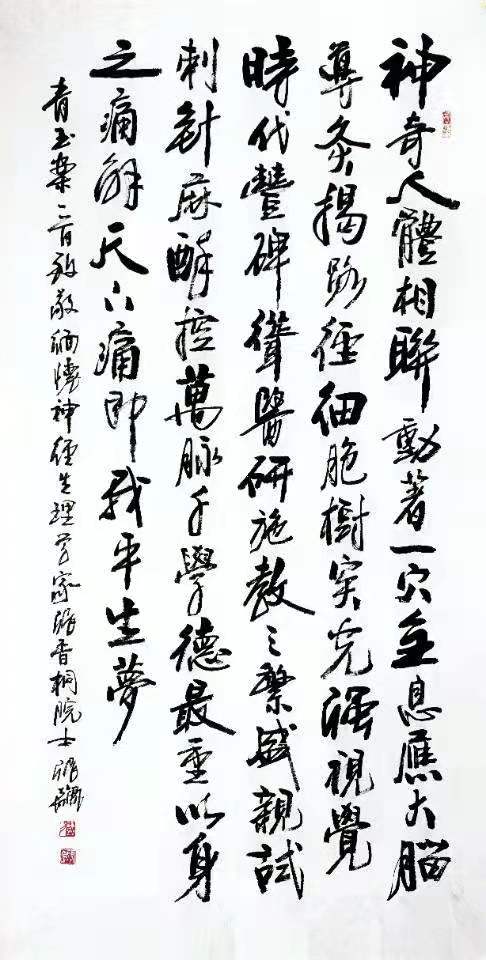 神奇人體相聯動著一穴全息應大腦
尊灸揭路徑細胞樹突光强視覺
時代豐碑聳醫研施教々繁盛親試
刺針麻醉控萬脉千學德最重以身
之痛解天下痛即我平生夢
青玉案首致敬緬懷神經生理學家張香桐院士